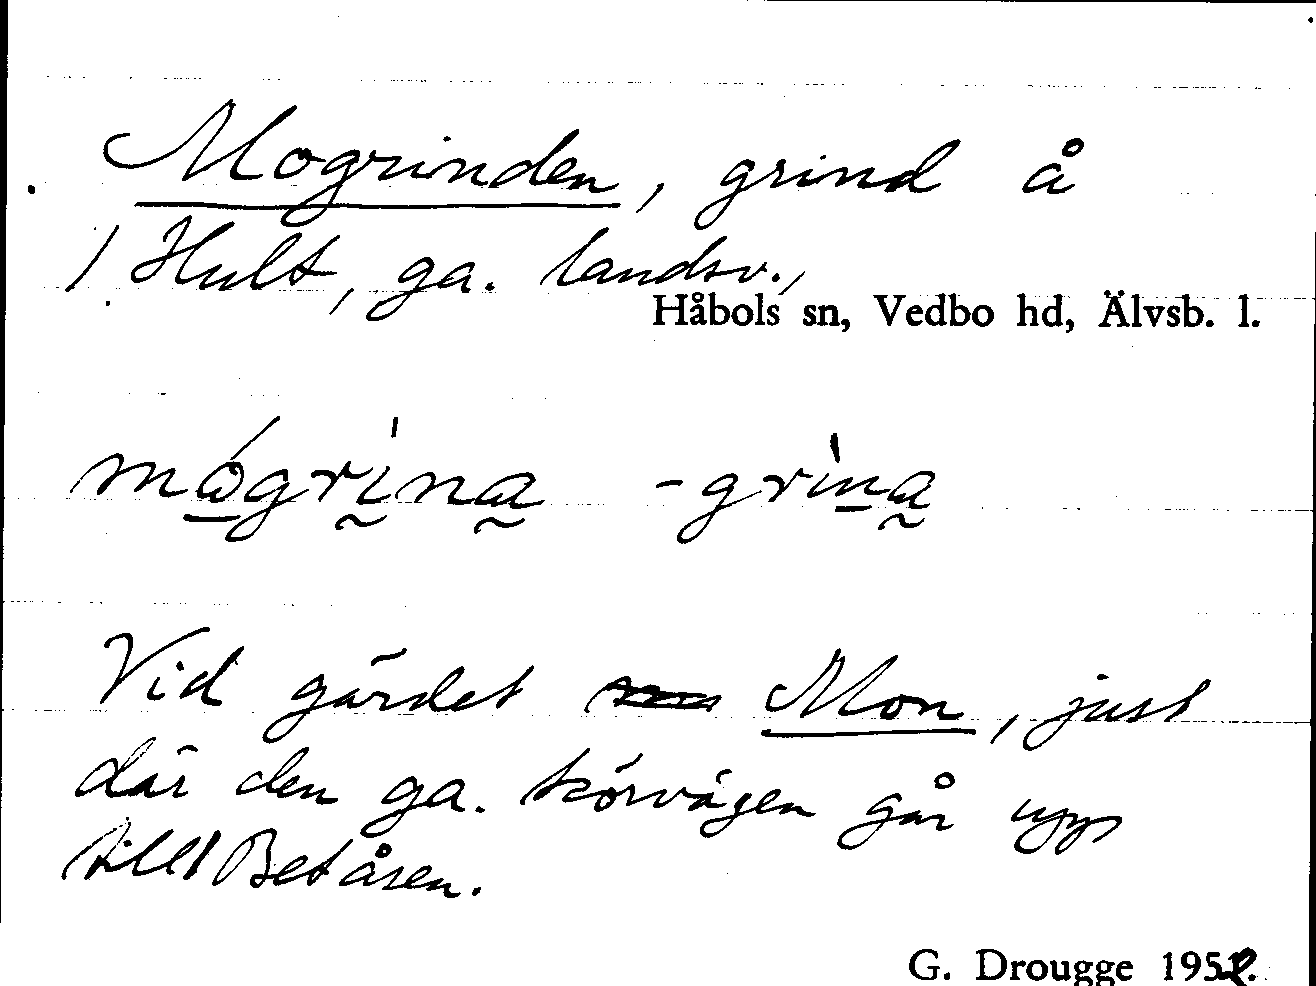 Mogrinden, grind å
/ Hult, ga. landsv.,
Håbols sn, Vedbo hd, Älvsb. l.
mógrìna -grìna
Vid gärdet Mon, just
där den ga. körvägen går upp
till Betåsen.
G. Drougge 1952.